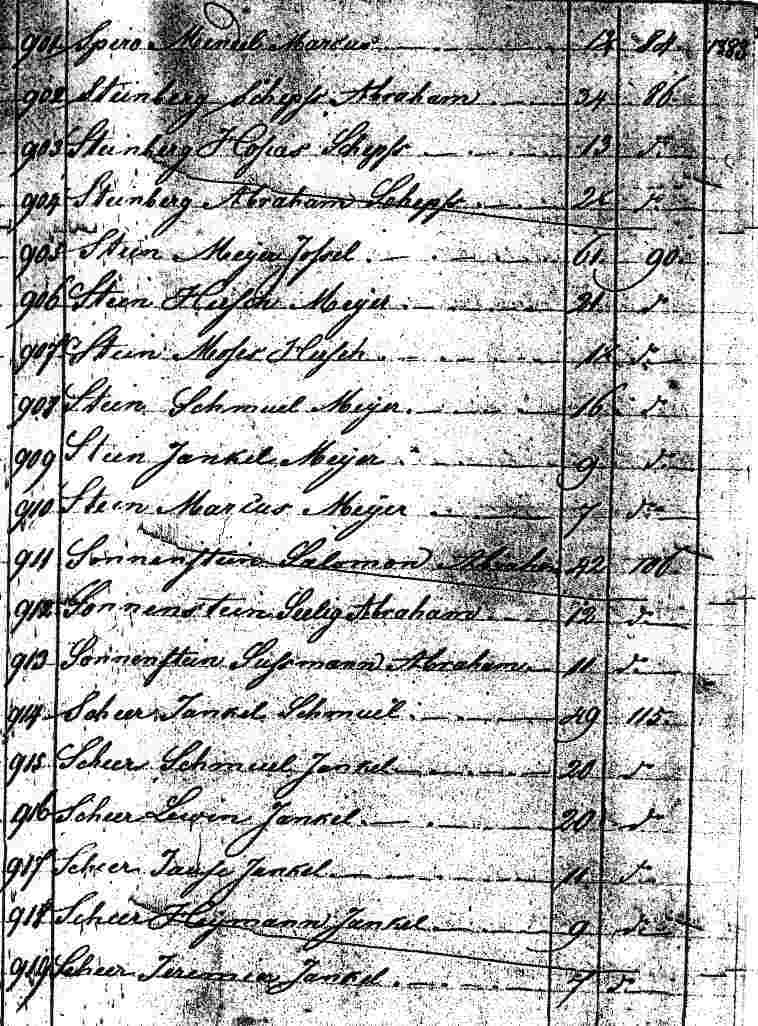 901 Spiro Mendel Marcus 12 84 1883
902 Steinberg Schepse Abraham 34 86
903 Steinberg Hosias Schepse 13 d.
904 Steinberg Abraham Schepse d.
905 Stein Meyer Jossel 61 90
906 Stein Hirsch Meyer 21 d.
907 Stein Moses Hirsch 18 d.
908 Stein Schmuel Meyer 16 d.
909 Stein Jankel Meyer 9 d.
910 Stein Marcus Meyer 7 d.
911 Sonnenstein Salomon Abraham 42 106
912 Sonnenstein Seelig Abraham 12 d.
913 Sonnenstein Süssmann Abraham 11 d.
914 Scheer Jankel Schmuel 49 115
915 Scheer Schmuel Jankel 20 d.
916 Scheer Lewin Jankel 20 d.
917 Scheer Jankel 11 d.
918 Scheer Heymann Jankel 9 d.
919 Scheer Jeremia Jankel 7 d.